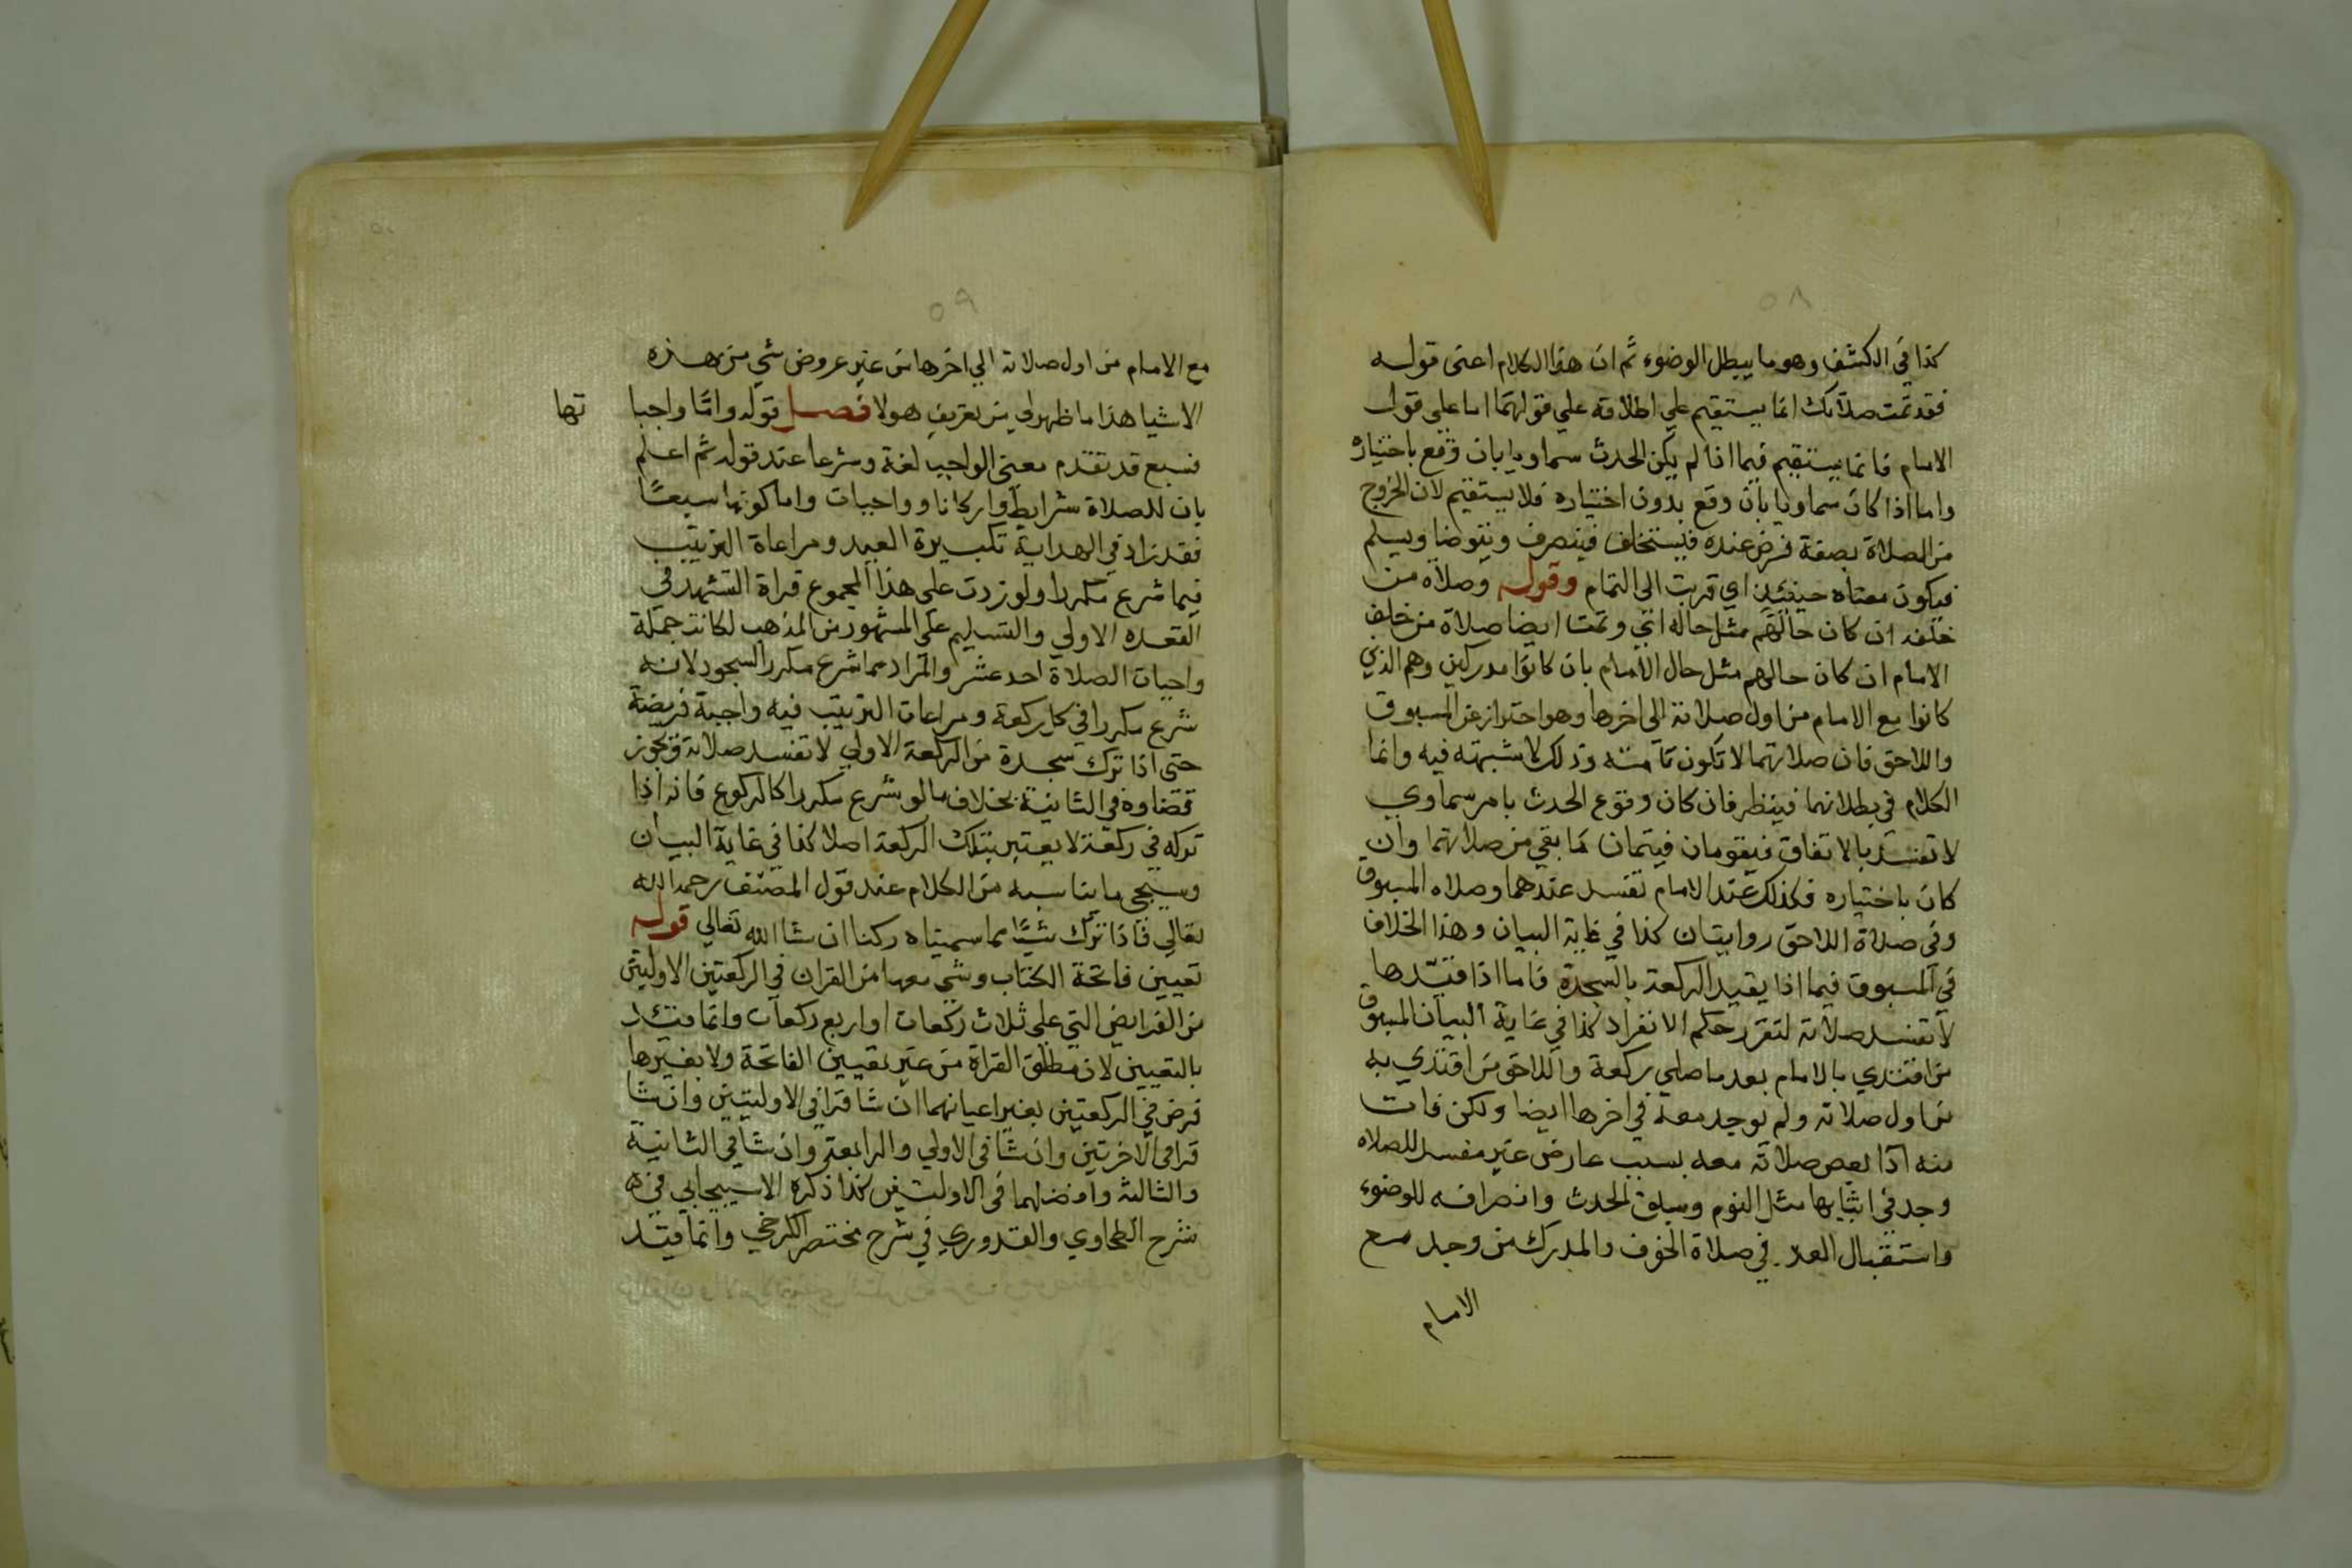 ٥٨
كذا في الكشف وهو ما يبطل الوضوء ثم ان هذا الكلام اعنى قوله
فقد تمت صلاتك انما يستقيم علي اطلاقه علي قولهما اما علي قول
الامام فانما يستقيم فيما اذا لم يكن الحدث سماويا بان وقع باختياره
واما اذا كان سماويا بان وقع بدون اختياره فلا يستقيم لان الخروج
من الصلاة بصفة فرض عنده فيستخلف فينصرف ويتوضا ويسلم
فيكون معناه حينئذ اي قربت الى التمام وقوله وصلاة من
خلفه ان كان حالهم مثل حاله اي وتمت ايضا صلاة من خلف
الامام ان كان حالهم مثل حال الامام بان كانوا مدركين وهم الذي
كانوا مع الامام من اول صلاته الى اخرها وهو احتراز عن المسبوق
واللاحق فان صلاتهما لا تكون تامة وذلك لا شبهة فيه وانما
الكلام في بطلانهما فينظر فان كان وقوع الحدث بامر سماوي
لا تفسد بالاتفاق فيقومان فيتمان ما بقي من صلاتهما وان
كان باختياره فكذلك عند الامام تفسد عندهما وصلاه المسبوق
وفي صلاة اللاحق روايتان كذا في غاية البيان وهذا الخلاف
في المسبوق فيما اذا يقيد الركعة بالسجدة فاما اذا قيدها
لا تفسد صلاته لتقرر حكم الانفراد كذا في غاية البيان المسبوق
من اقتدي بالامام بعد ما صلي ركعة واللاحق من اقتدي به
من اول صلاته ولم يوجد معه في اخرها ايضا ولكن فات
منه اذا بعض صلاته معه بسبب عارض غير مفسد للصلاه
وجد في اثنايها مثل النوم وسبق الحدث وانصرافه للوضوء
واستقبال العد في صلاة الخوف والمدرك من وجد مع
الامام
٥٩
مع الامام من اول صلاته الي اخرها من غير عروض شي من هذه
الاشيا هذا ما ظهر لي من تعريف هولا فصل قوله واما واجبا
تها
فسبع قد تقدم معنى الواجب لغة وشرعا عند قوله ثم اعلم
بان للصلاة شرايط واركانا وواجبات واما كونها سبعا
فقد زاد في الهداية تكبيرة العيد ومراعاة الترتيب
فيما شرع مكررا ولو زدت على هذا المجموع قراة التشهد في
القعده الاولي والتسليم علي المشهور من المذهب لكانت جملة
واجبات الصلاة احد عشر والمراد مما شرع مكررا السجود لانه
شرع مكررا في كل ركعة ومراعات الترتيب فيه واجبة فريضة
حتى اذا ترك سجدة من الركعة الاولي لا تفسد صلاته ويجوز
قضاوه في الثانية بخلاف ما لو شرع مكررا كالركوع فانه اذا
تركه في ركعة لا يعتبر بتلك الركعة اصلا كذا في غاية البيان
وسيجى ما يناسبه من الكلام عند قول المصنف رحمه الله
تعالي فاذا ترك شيئا مما سميناه ركنا ان شا الله تعالي قوله
تعيين فاتحة الكتاب وشي معها من القران في الركعتين الاوليتين
من الفرايض التي على ثلاث ركعات او اربع ركعات وانما قيد
بالتعيين لان مطلق القراة من غير تعيين الفاتحة ولا بغيرها
فرض في الركعتين بغير اعيانهما ان شا قرا في الاوليتين وان شا
قرا في الاخرتين وان شا في الاولي والرابعة وان شا في الثانية
والثالثة وافضلهما في الاوليتين كذا ذكره الاسبيجابي في
شرح الطحاوي والقدوري في شرح مختصر الكرخي وانما قيد